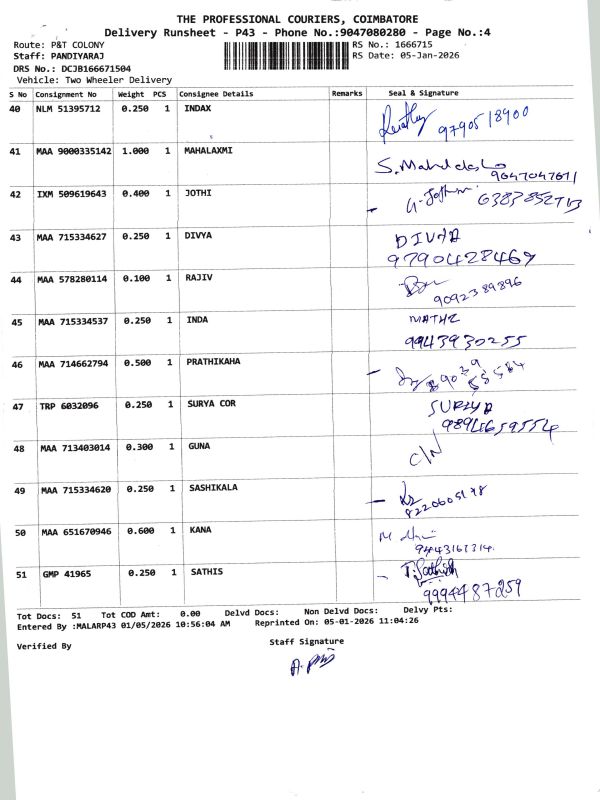 THE PROFESSIONAL COURIERS, COIMBATORE
Delivery Runsheet - P43 - Phone No.:9047080280 - Page No.:4
Route: P&T COLONY RS No.: 1666715
Staff: PANDIYARAJ RS Date: 05-Jan-2026
DRS No.: DCJB166671504
Vehicle: Two Wheeler Delivery
S No Consignment No Weight PCS Consignee Details Remarks Seal & Signature
40 NLM 51395712 0.250 1 INDAX
41 MAA 9000335142 1.000 1 MAHALAXMI
42 IXM 509619643 0.400 1 JOTHI
6383852713
43 MAA 715334627 0.250 1 DIVYA DIVYA
9790428469
44 MAA 578280114 0.100 1 RAJIV
9092389896
45 MAA 715334537 0.250 1 INDA
9943930255
46 MAA 714662794 0.500 1 PRATHIKAHA
47 TRP 6032096 0.250 1 SURYA COR SURYA
9894659554
48 MAA 713403014 0.300 1 GUNA C/N
49 MAA 715334620 0.250 1 SASHIKALA
50 MAA 651670946 0.600 1 KANA
9443161314
51 GMP 41965 0.250 1 SATHIS T. Sathish
9994487259
Tot Docs: 51 Tot COD Amt: 0.00 Delvd Docs: Non Delvd Docs: Delvy Pts:
Entered By :MALARP43 01/05/2026 10:56:04 AM Reprinted On: 05-01-2026 11:04:26
Verified By Staff Signature